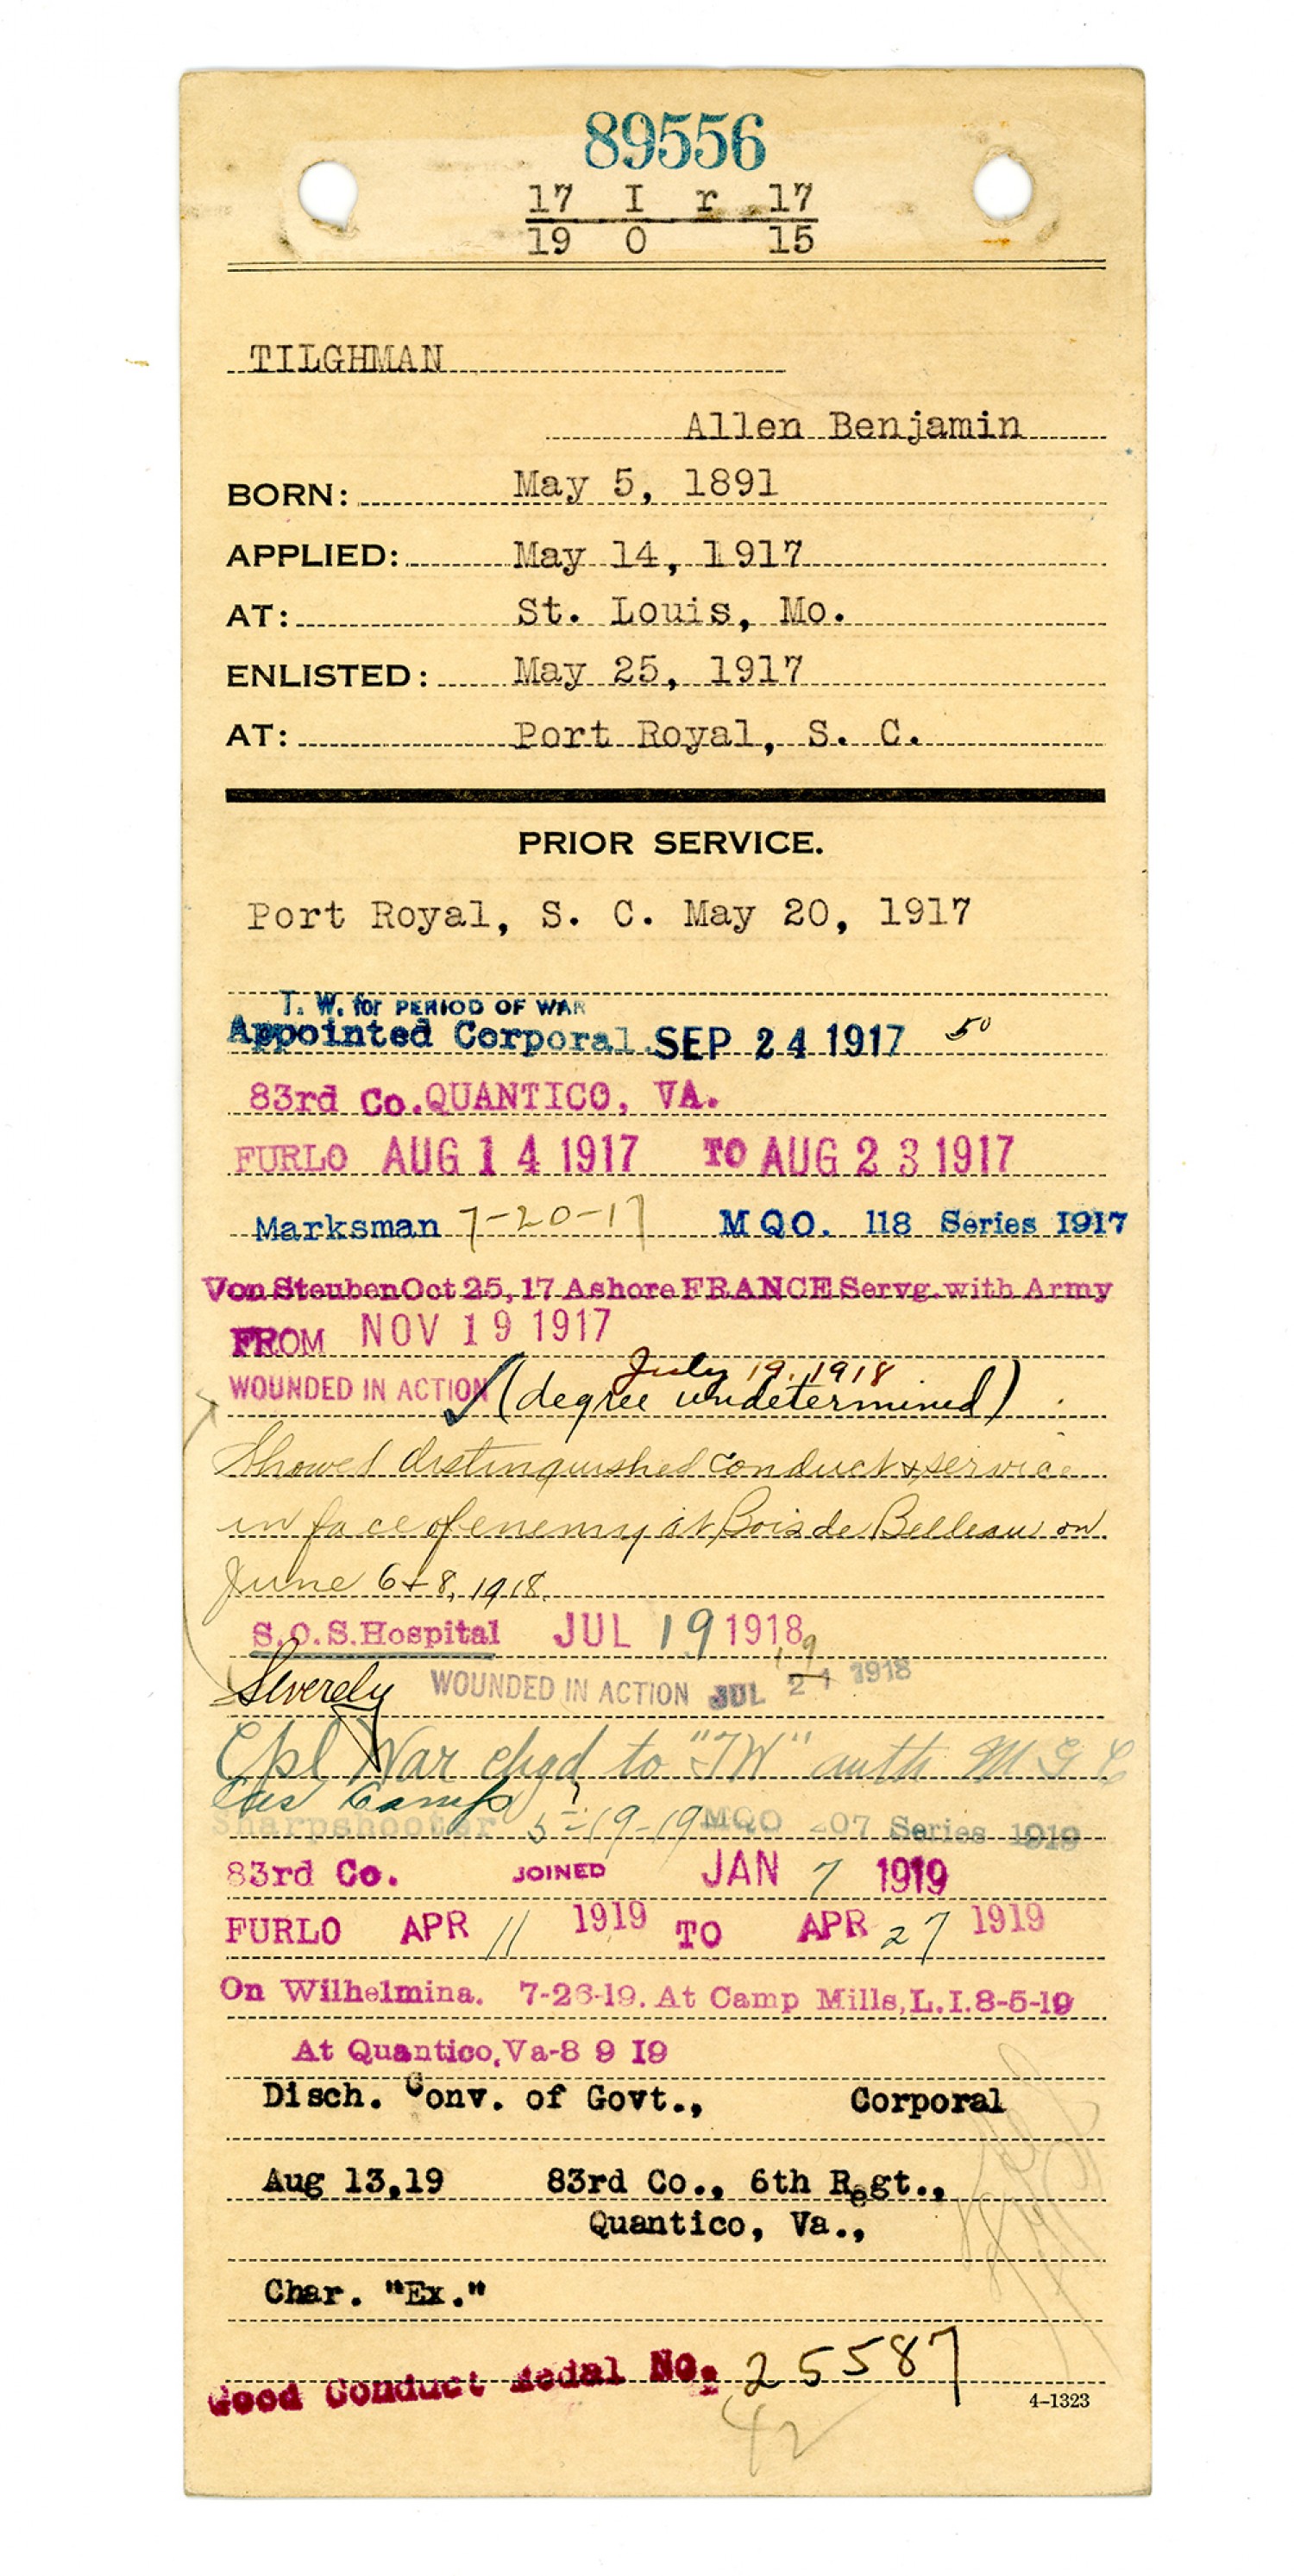 89556
17 I r 17
19 0 15
TILGHMAN
Allen Benjamin
BORN: May 5, 1891
APPLIED: May 14, 1917
AT: St. Louis, Mo.
ENLISTED: May 25, 1917
AT: Port Royal, S. C.
PRIOR SERVICE.
Port Royal, S. C. May 20, 1917
T. W. for PERIOD OF WAR
Appointed Corporal SEP 24 1917 50
83rd Co. QUANTICO, VA.
FURLO AUG 14 1917 TO AUG 23 1917
Marksman 7-20-17 MQO. 118 Series 1917
Von Steuben Oct 25, 17 Ashore FRANCE Servg. with Army
FROM NOV 19 1917
July 19, 1918
WOUNDED IN ACTION (degree undetermined)
Showed distinguished conduct & service
in face of enemy at Bois de Belleau on
June 6 & 8, 1918.
S.O.S. Hospital JUL 19 1918
19
Severely WOUNDED IN ACTION JUL 21 1918
Cpl War chgd to "TW" auth M G C
Camp
Sharpshooter 5-19-19 MQO 207 Series 1919
83rd Co. JOINED JAN 7 1919
FURLO APR 11 1919 TO APR 27 1919
On Wilhelmina. 7-26-19. At Camp Mills, L.I. 8-5-19
At Quantico, Va-8 9 19
Disch. Conv. of Govt., Corporal
Aug 13,19 83rd Co., 6th Regt.,
Quantico, Va.,
Char. "Ex."
Good Conduct Medal No. 25587
4-1323
42